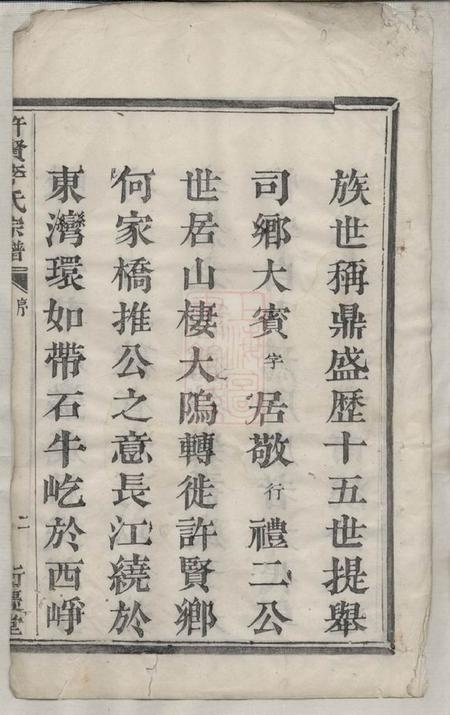 族世稱鼎盛歷十五世提舉
司鄉大賓字居敬行禮二公
世居山棲大塢轉徙許賢鄉
何家橋推公之意長江繞於
東灣環如帶石牛屹於西崢
許賢李氏宗譜 序 二